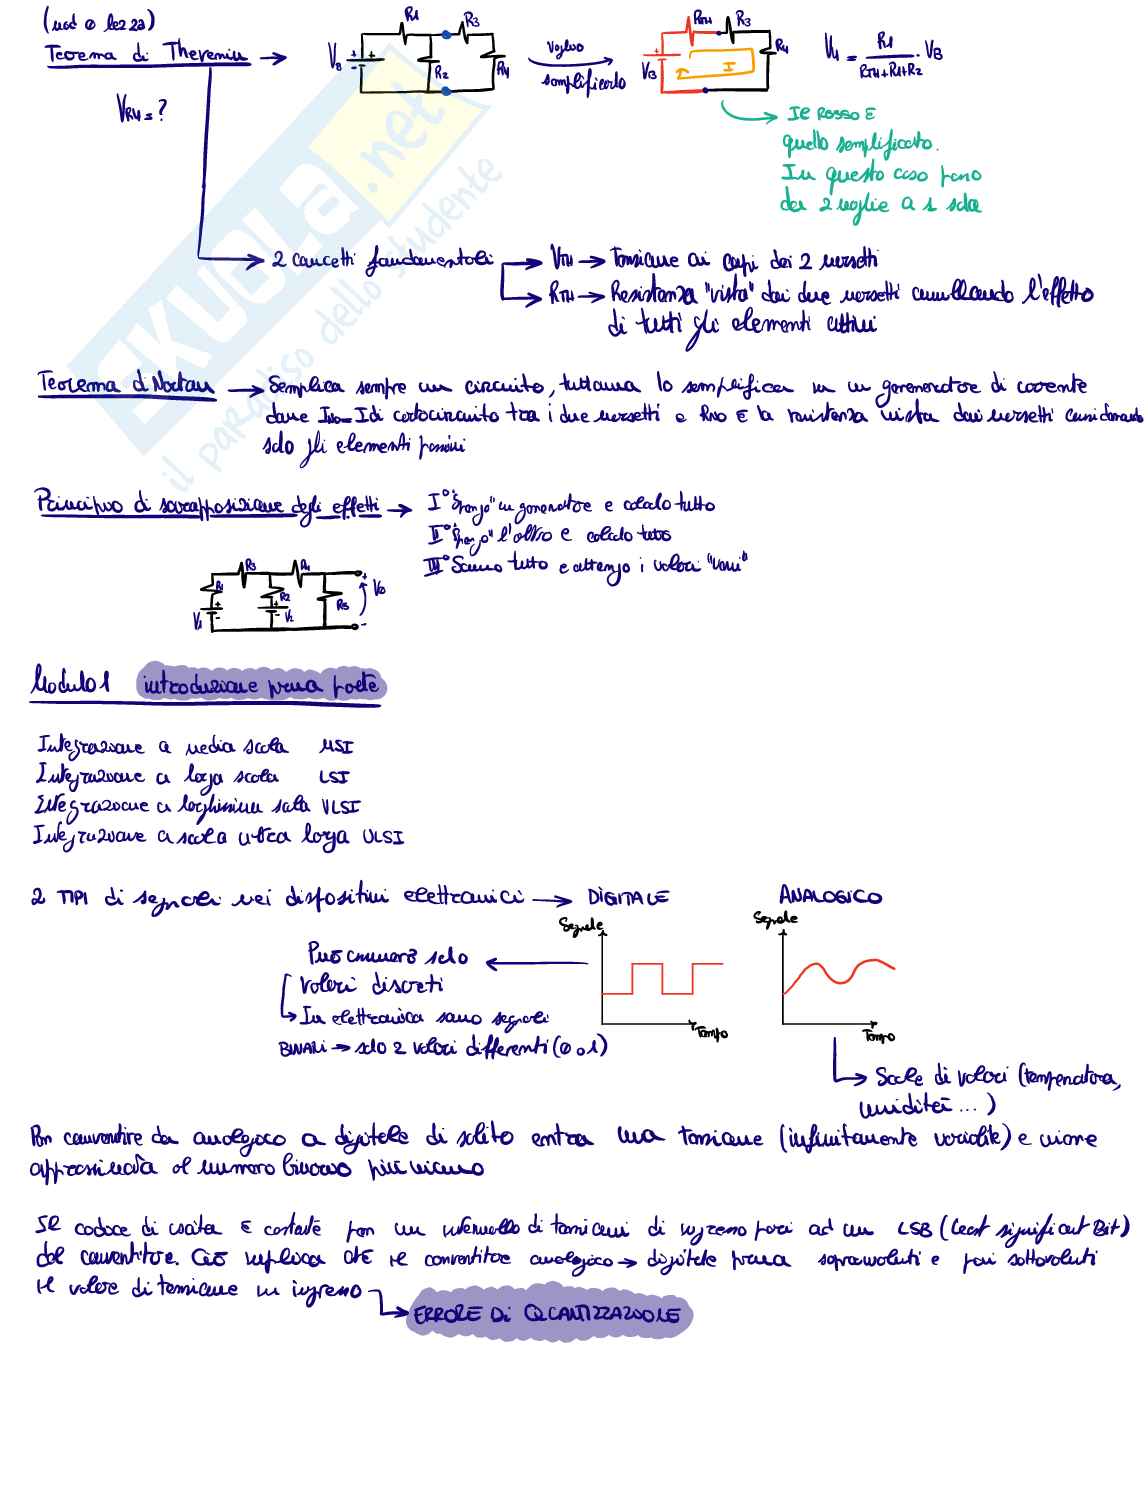 (mod 0 lez 2a)
Teorema di Thevenin
VR4 = ?
VB R1 R2 R3 R4
Voglio
semplificarlo
VB RTH R3 R4 I
V4 = R4 / RTH+R1+R2 · VB
Il rosso è
quello semplificato.
In questo caso passo
da 2 maglie a 1 sola
2 concetti fondamentali
VTH → Tensione ai capi dei 2 morsetti
RTH → Resistenza "vista" dai due morsetti annullando l'effetto
di tutti gli elementi attivi
Teorema di Norton → Semplica sempre un circuito, tuttavia lo semplifica in un generatore di corrente
dove INO = I di cortocircuito tra i due morsetti e RNO è la resistenza vista dai morsetti considerando
solo gli elementi passivi
Principio di sovrapposizione degli effetti → I° "Spengo" un generatore e calcolo tutto
II° "Spengo" l'altro e calcolo tutto
III° Sommo tutto e ottengo i valori "veri"
V1 R1 R3 R2 V2 R4 R5 V0
Modulo 1 introduzione prima parte
Integrazione a media scala MSI
Integrazione a larga scala LSI
Integrazione a larghissima scala VLSI
Integrazione a scala ultra larga ULSI
2 TIPI di segnali nei dispositivi elettronici → DIGITALE ANALOGICO
Segnale Tempo
Segnale Tempo
Può assumere solo
valori discreti
In elettronica sono segnali
BINARI → solo 2 valori differenti (0 o 1)
Scale di valori (temperatura,
umidità ...)
Per convertire da analogico a digitale di solito entra una tensione (infinitamente variabile) e viene
approssimata al numero binario più vicino
Il codice di uscita è costante per un intervallo di tensioni di ingresso pari ad un LSB (Least significant Bit)
del convertitore. Ciò implica che il convertitore analogico → digitale prima sopravvaluti e poi sottovaluti
il valore di tensione in ingresso
ERRORE DI QUANTIZZAZIONE
SKUOLA.net
il paradiso dello studente